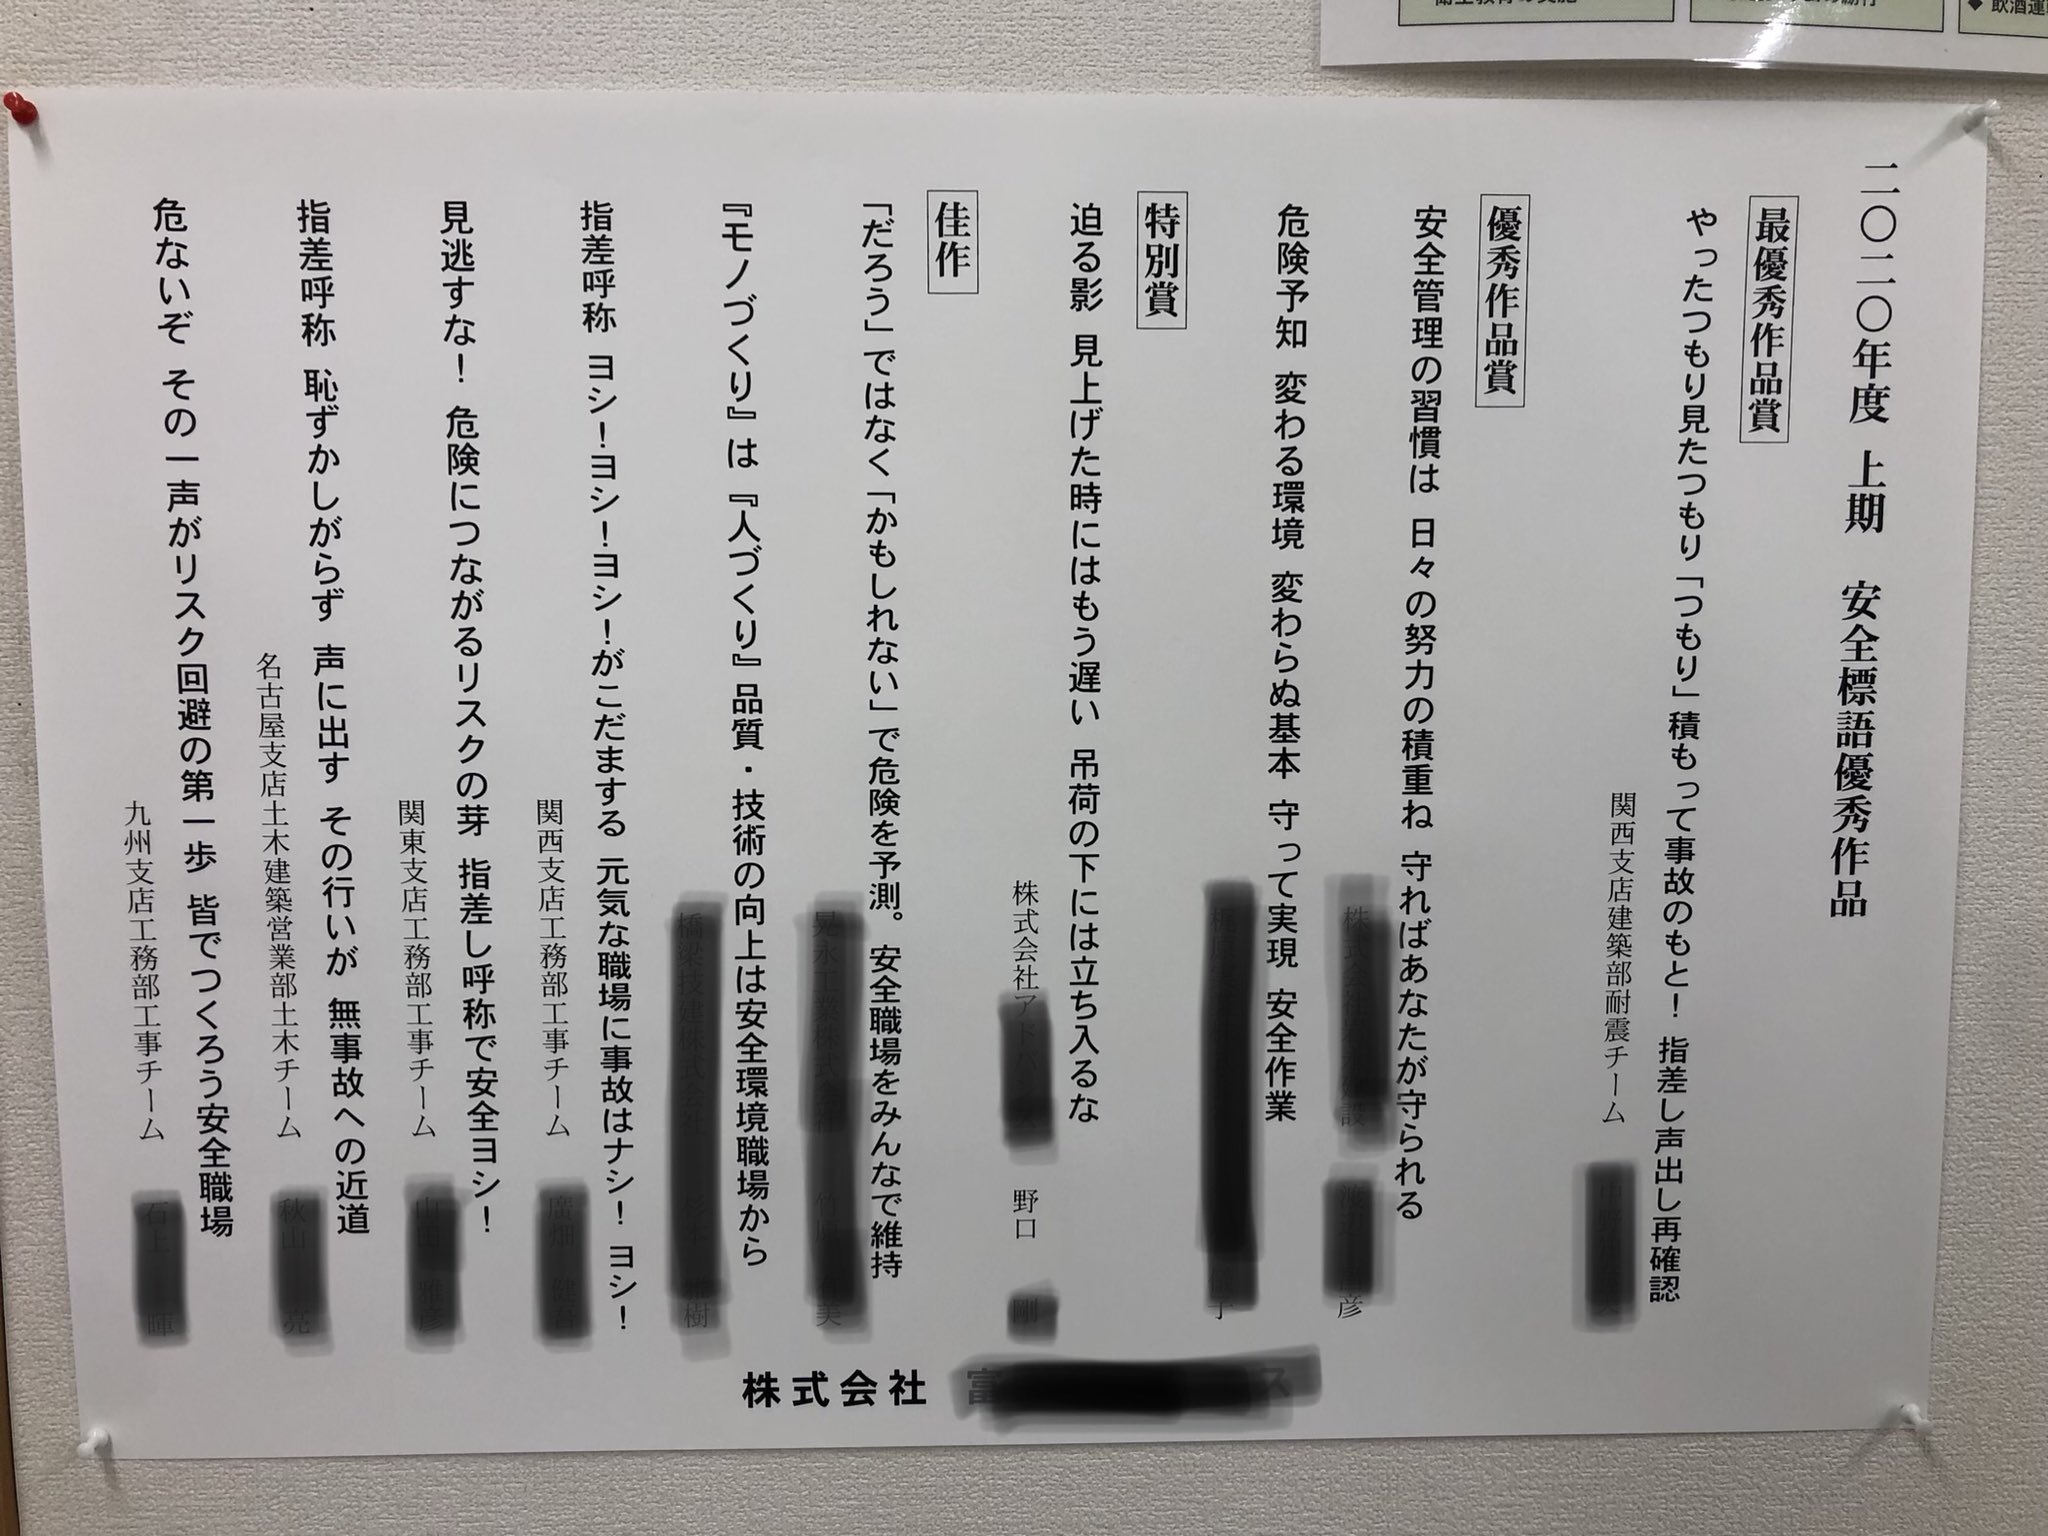 二〇二〇年度 上期 安全標語優秀作品
最優秀作品賞
やったつもり見たつもり「つもり」積もって事故のもと！ 指差し声出し再確認
関西支店建築部耐震チーム
優秀作品賞
安全管理の習慣は 日々の努力の積重ね 守ればあなたが守られる
危険予知 変わる環境 変わらぬ基本 守って実現 安全作業
特別賞
迫る影 見上げた時にはもう遅い 吊荷の下には立ち入るな
株式会社 野口
佳作
「だろう」ではなく「かもしれない」で危険を予測。 安全職場をみんなで維持
『モノづくり』は『人づくり』品質・技術の向上は安全環境職場から
指差呼称 ヨシ！ヨシ！ヨシ！がこだまする 元気な職場に事故はナシ！ ヨシ！
関西支店工務部工事チーム
見逃すな！ 危険につながるリスクの芽 指差し呼称で安全ヨシ！
関東支店工務部工事チーム
指差呼称 恥ずかしがらず 声に出す その行いが 無事故への近道
名古屋支店土木建築営業部土木チーム
危ないぞ その一声がリスク回避の第一歩 皆でつくろう安全職場
九州支店工務部工事チーム
株式会社
飲酒運